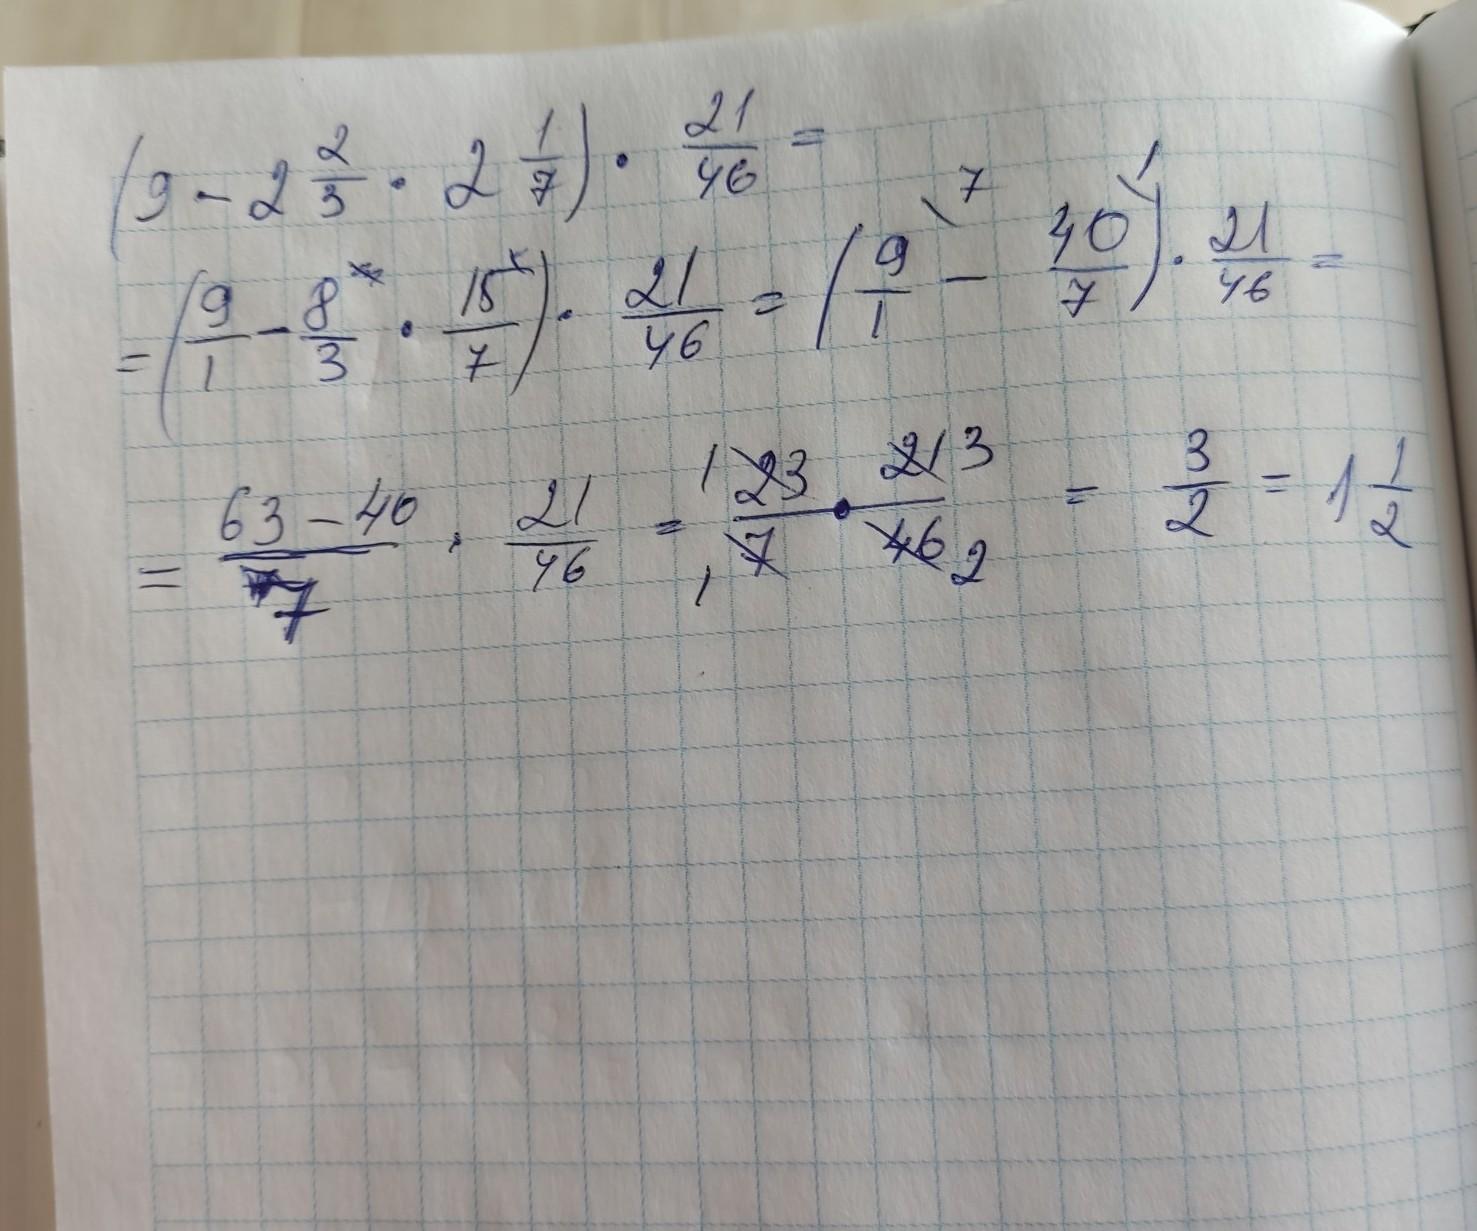 (9 - 2 2/3 · 2 1/7) · 21/46 =
= (9/1 - 8/3 · 15/7) · 21/46 = (9/1 \7 - 40/7 \1) · 21/46 =
= (63 - 40)/7 · 21/46 = 1 23/7 1 · 21 3/46 2 = 3/2 = 1 1/2